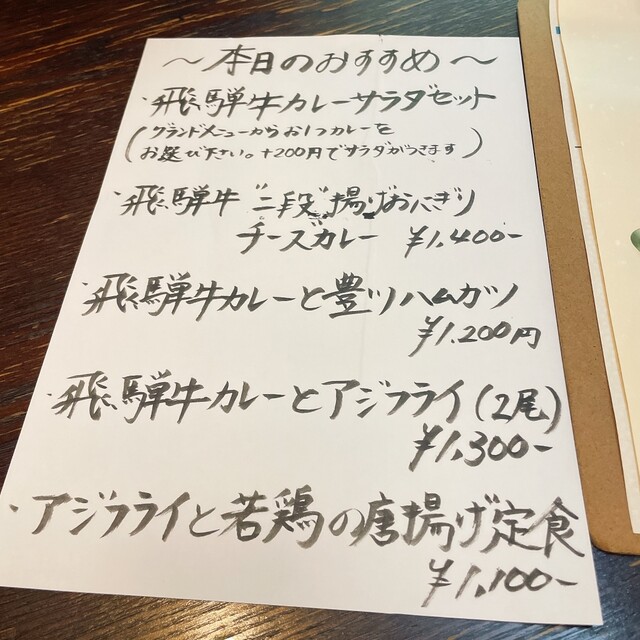 ～本日のおすすめ～
・飛騨牛カレーサラダセット
(グランドメニューからお1つカレーを
お選び下さい。+200円でサラダがつきます)
・飛騨牛"二段"揚げおにぎり
チーズカレー ¥1,400-
・飛騨牛カレーと豊ツハムカツ
¥1,200円
・飛騨牛カレーとアジフライ(2尾)
¥1,300-
・アジフライと若鶏の唐揚げ定食
¥1,100-